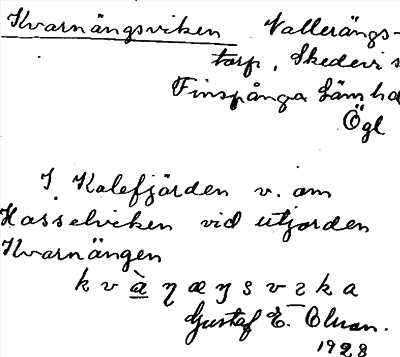 Kvarnängsviken Vallerängs-
torp, Skedevi s
Finspånga läns hd
Ögl
I Kalefjärden v. om
Hasselviken vid utjorden
Kvarnängen
Gustaf E.
1928